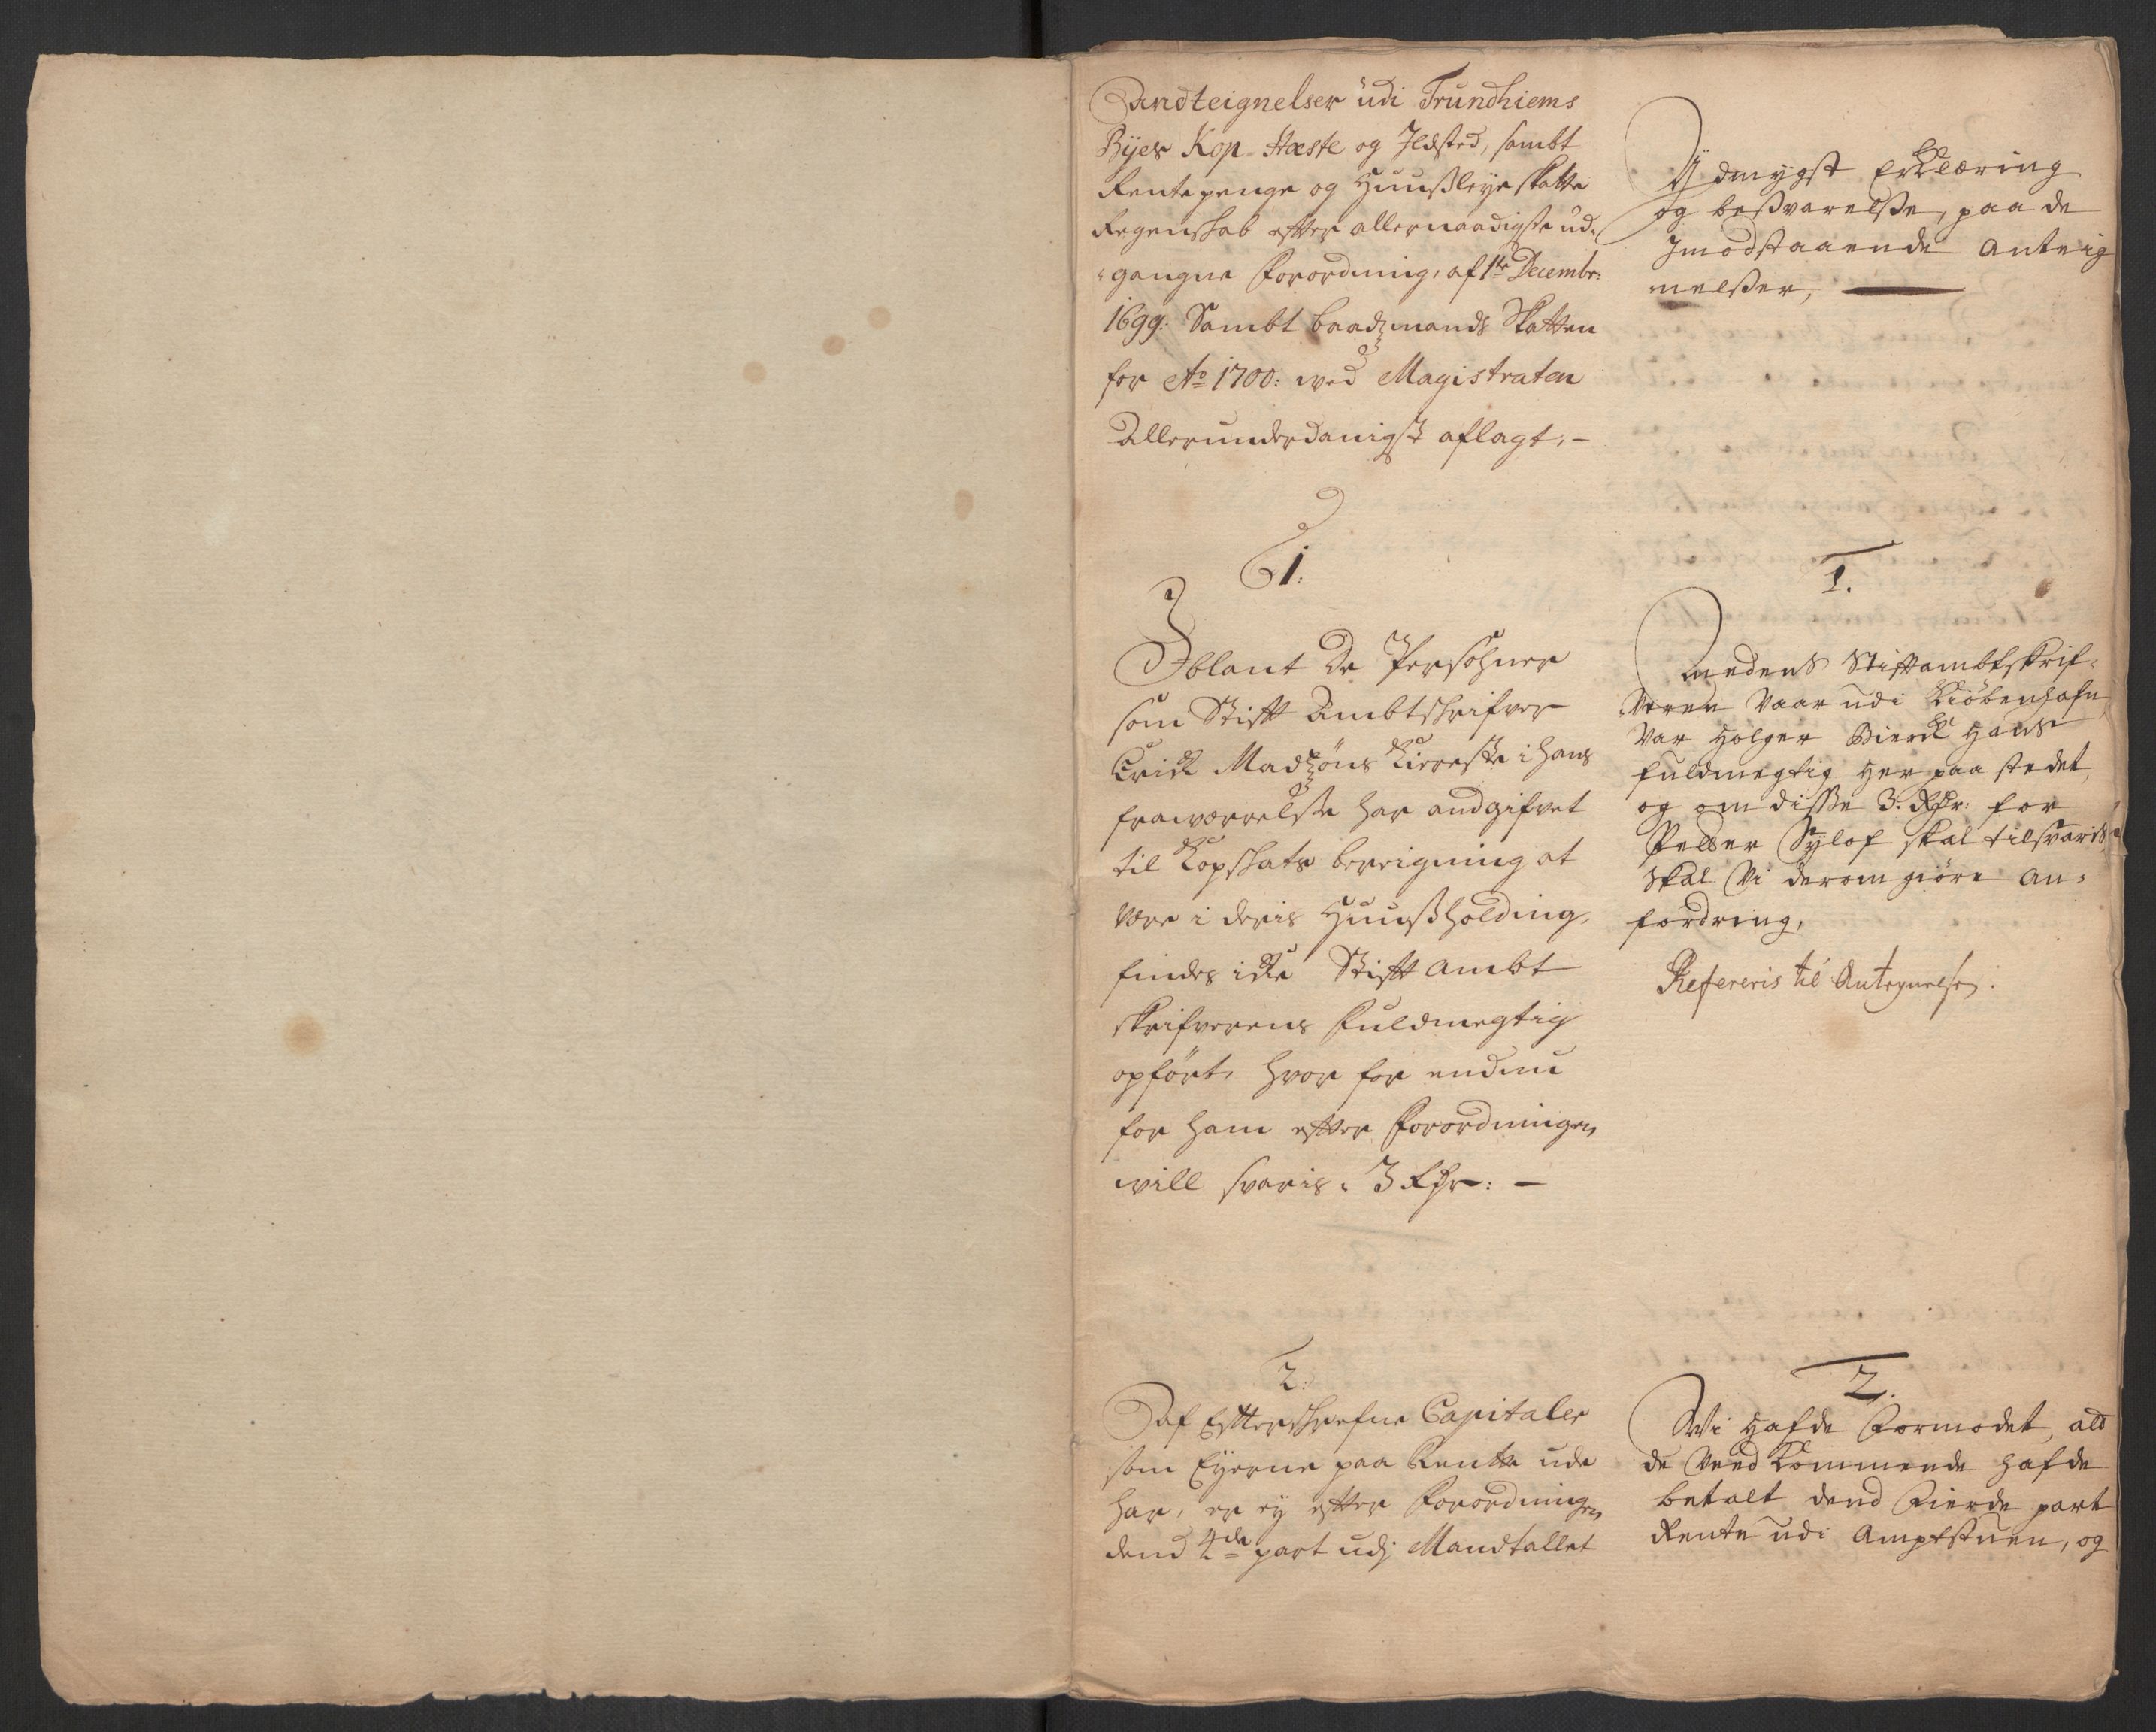 Andteignelser udi Trundhiems
Byes Kop- Hæste og Ildsted, sambt
Rentepenge og Huusleye skatte
Regenskab efter allernaadigste ud-
gangne forordning, af 1te Decembr:
1699. Sambt baadzmands Skatten
for Ao 1700: wed Magistraten
Allerunderdanigst aflagt, -
1:
Iblant De Persohner
som Stift Ambtschrifver
Erick Madzøns Kierreste i hans
frawærrelße har andgifvet
til Kopskats bereigning at
være i deris Huußholding,
findes icke Stift Ambt
skrifverens fuldmegtig
opført, hvor for endnu
for ham efter forordningen
will svaris, 3 Rdr: -
2:
Af Efterschrefne Capitaler
som Eyerne paa Rentte ude
har, er ey efter forordningen
dend 4de part udj Mandtallet
Ydmygst Erklæring
og beßvarelße, paa de
Jmodstaaende Anteig
nelßer,
1.
Medens Stiftambtskrif-
veren Vaar udi Kiøbenhafn,
Var Holger Bierck Hans
fuldmegtig Her paa stedet,
og om diße 3. Rdr: for
Peller Sylof skal tilsvaris,
Skal Vi derom giøre An-
fordring,
Refereris til Antegnelsen.
2.
Wi Hafde Formodet, ald
de Vedkommende hafde
betalt dend Fierde part
Rente udi Amptstuen, og